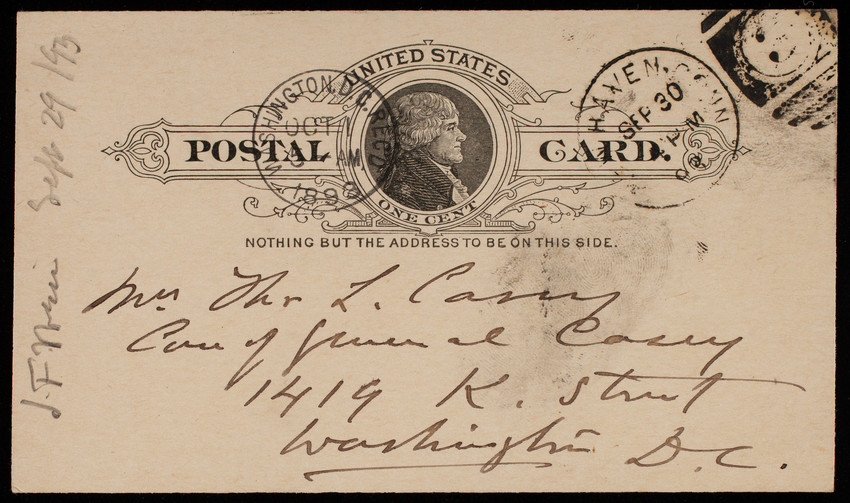 UNITED STATES
POSTAL CARD.
ONE CENT
NOTHING BUT THE ADDRESS TO BE ON THIS SIDE.
WASHINGTON, D.C. REC'D.
OCT 1
AM
189
HAVEN CONN
SEP 30
PM
Mrs Tho L. Casey
Care of General Casey
1419 K. Street
Washington D.C.
J. F. Sept 29/93